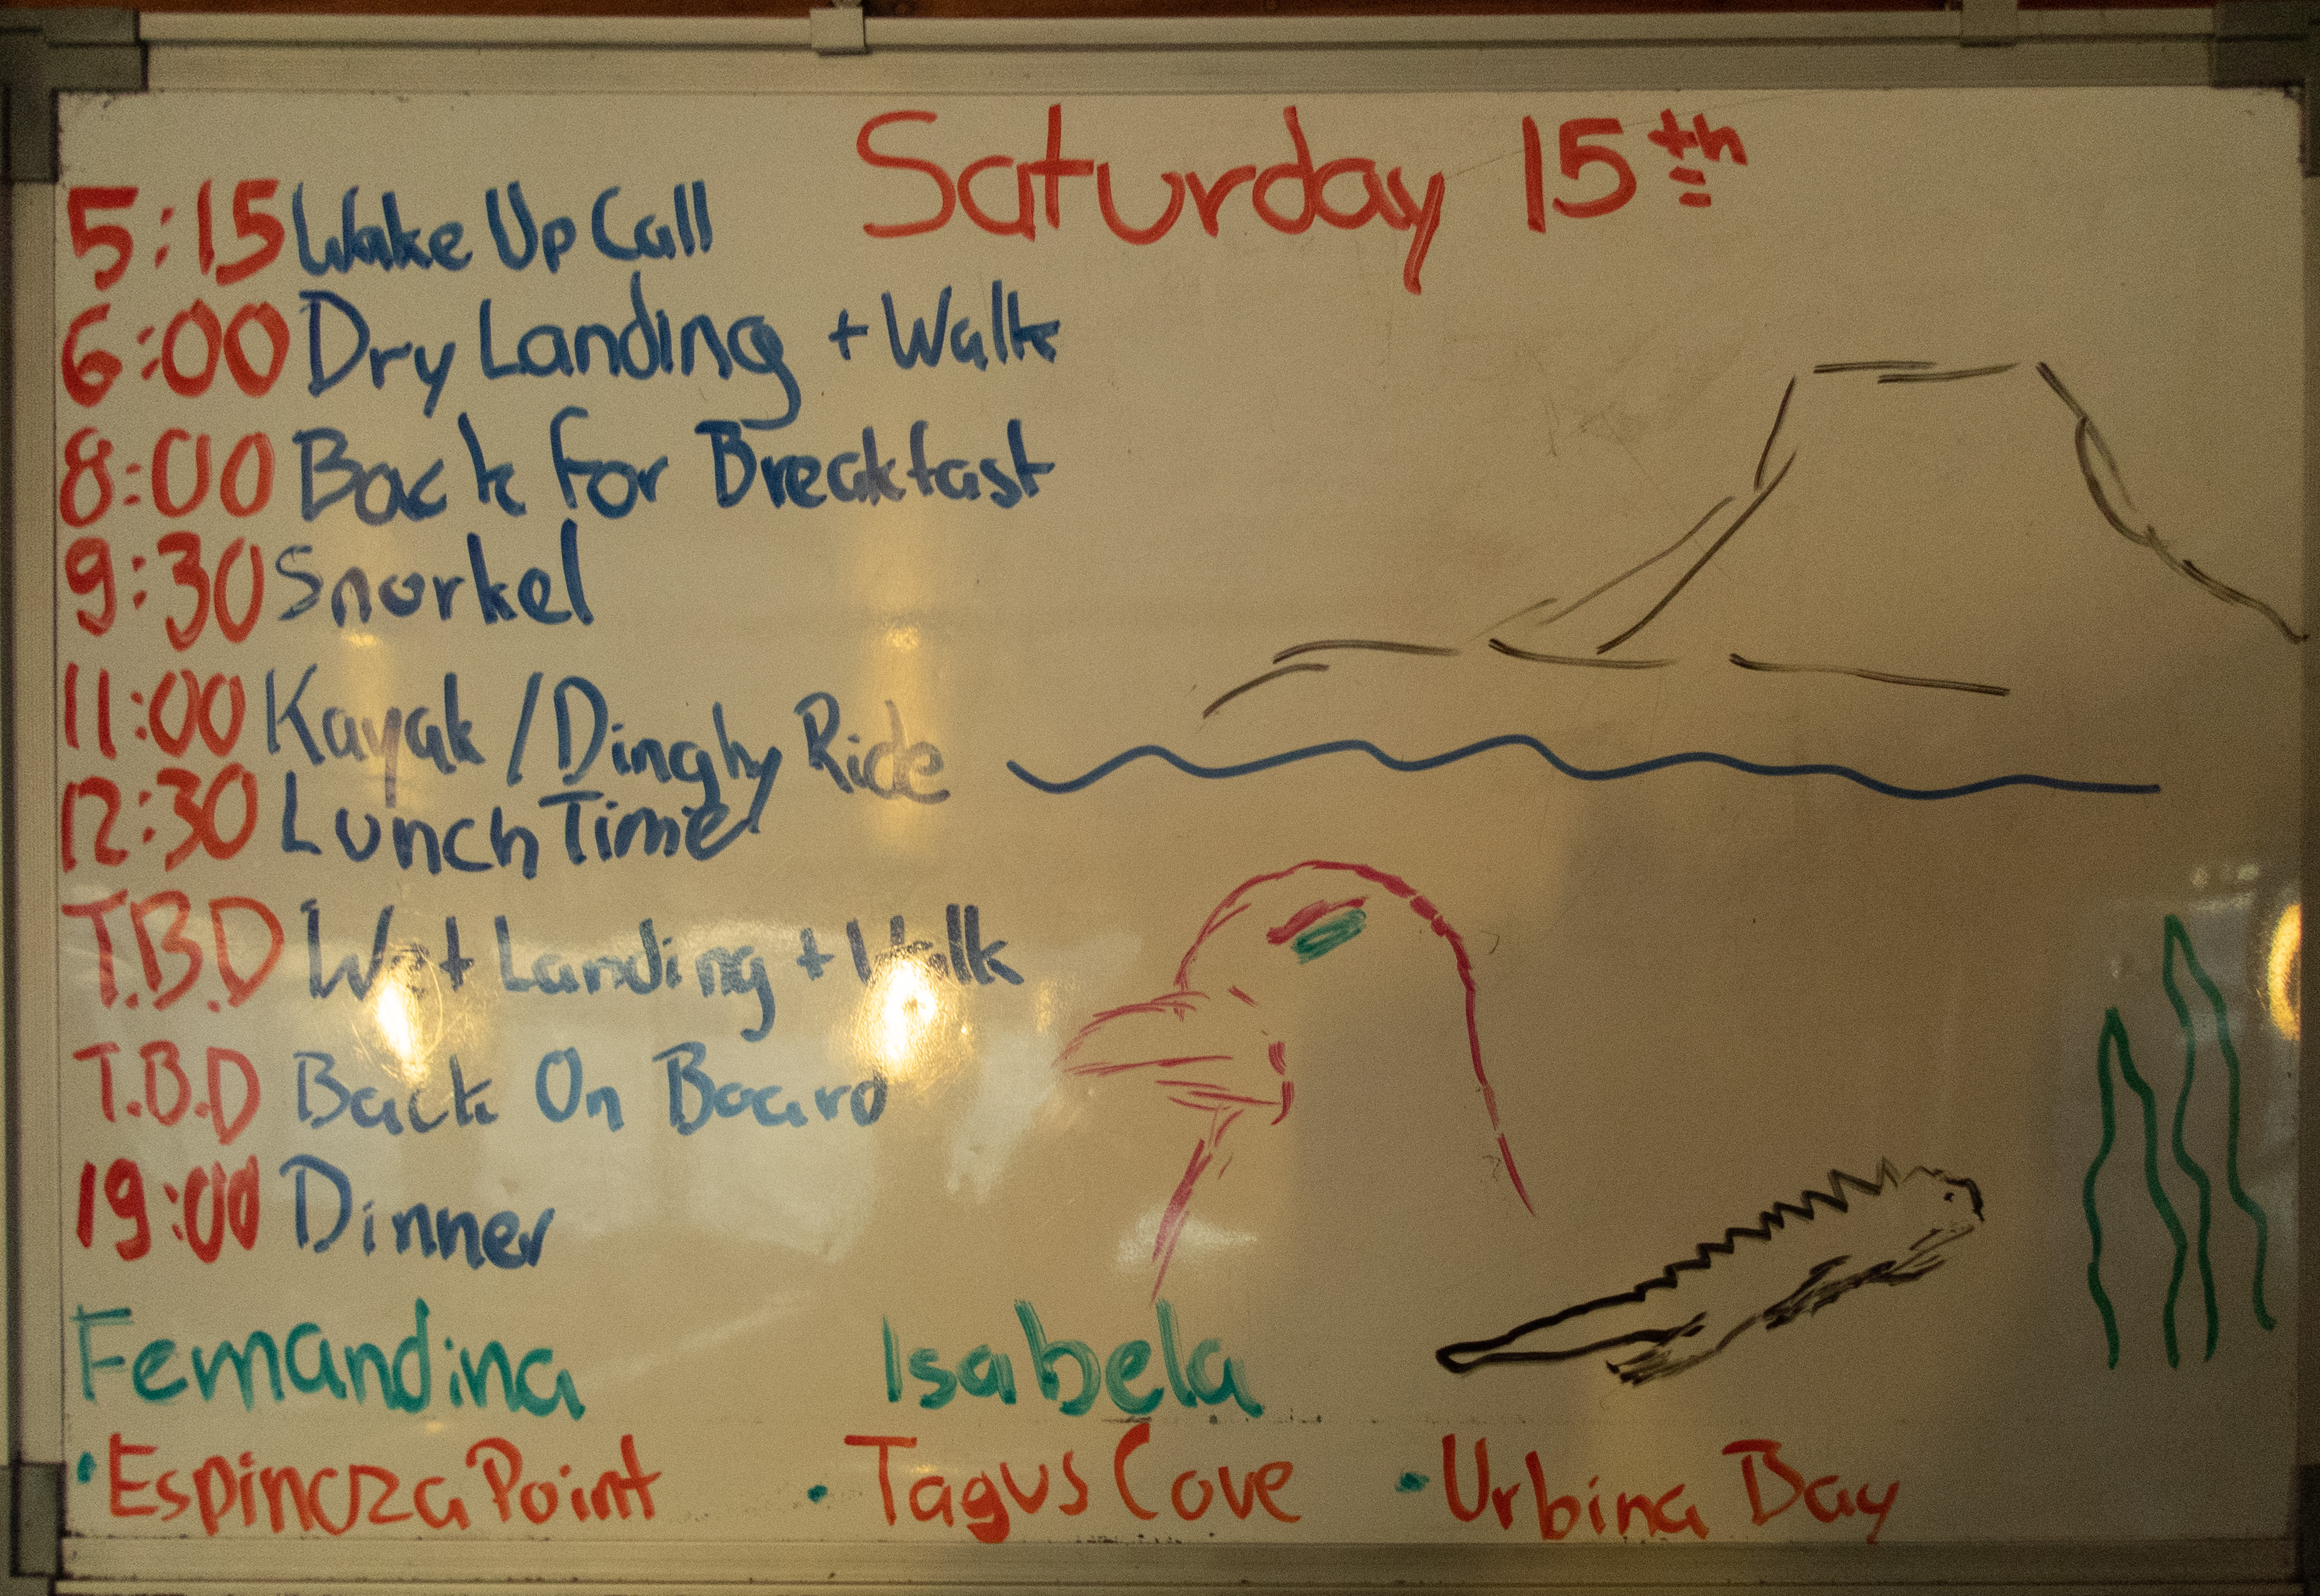 Saturday 15th
5:15 Wake Up Call
6:00 Dry Landing + Walk
8:00 Back for Breakfast
9:30 Snorkel
11:00 Kayak / Dinghy Ride
12:30 Lunch Time
T.B.D Wet Landing + Walk
T.B.D Back On Board
19:00 Dinner
Fernandina Isabela
• Espinoza Point • Tagus Cove • Urbina Bay